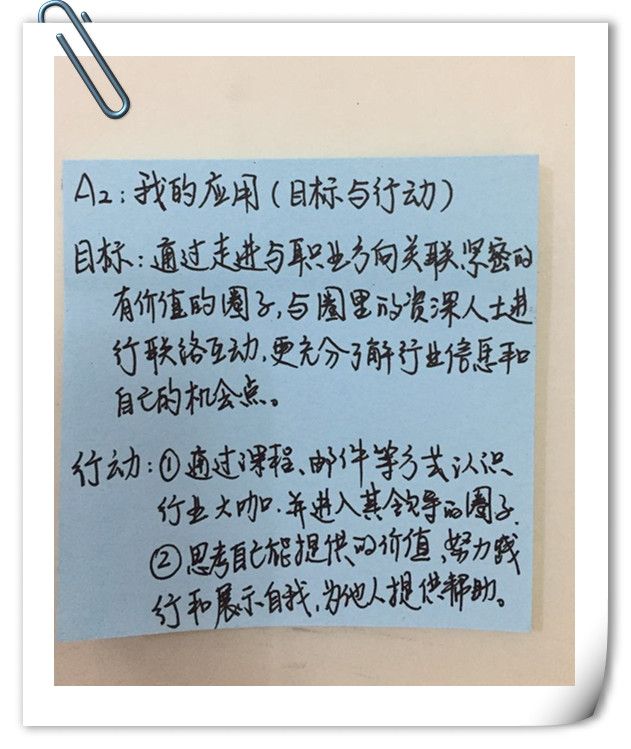 A2:我的应用(目标与行动)
目标:通过走进与职业方向关联紧密的
有价值的圈子,与圈里的资深人士进
行联络互动,更充分了解行业信息和
自己的机会点。
行动:①通过课程、邮件等方式认识
行业大咖.并进入其领导的圈子.
②思考自己能提供的价值,努力践
行和展示自我,为他人提供帮助。